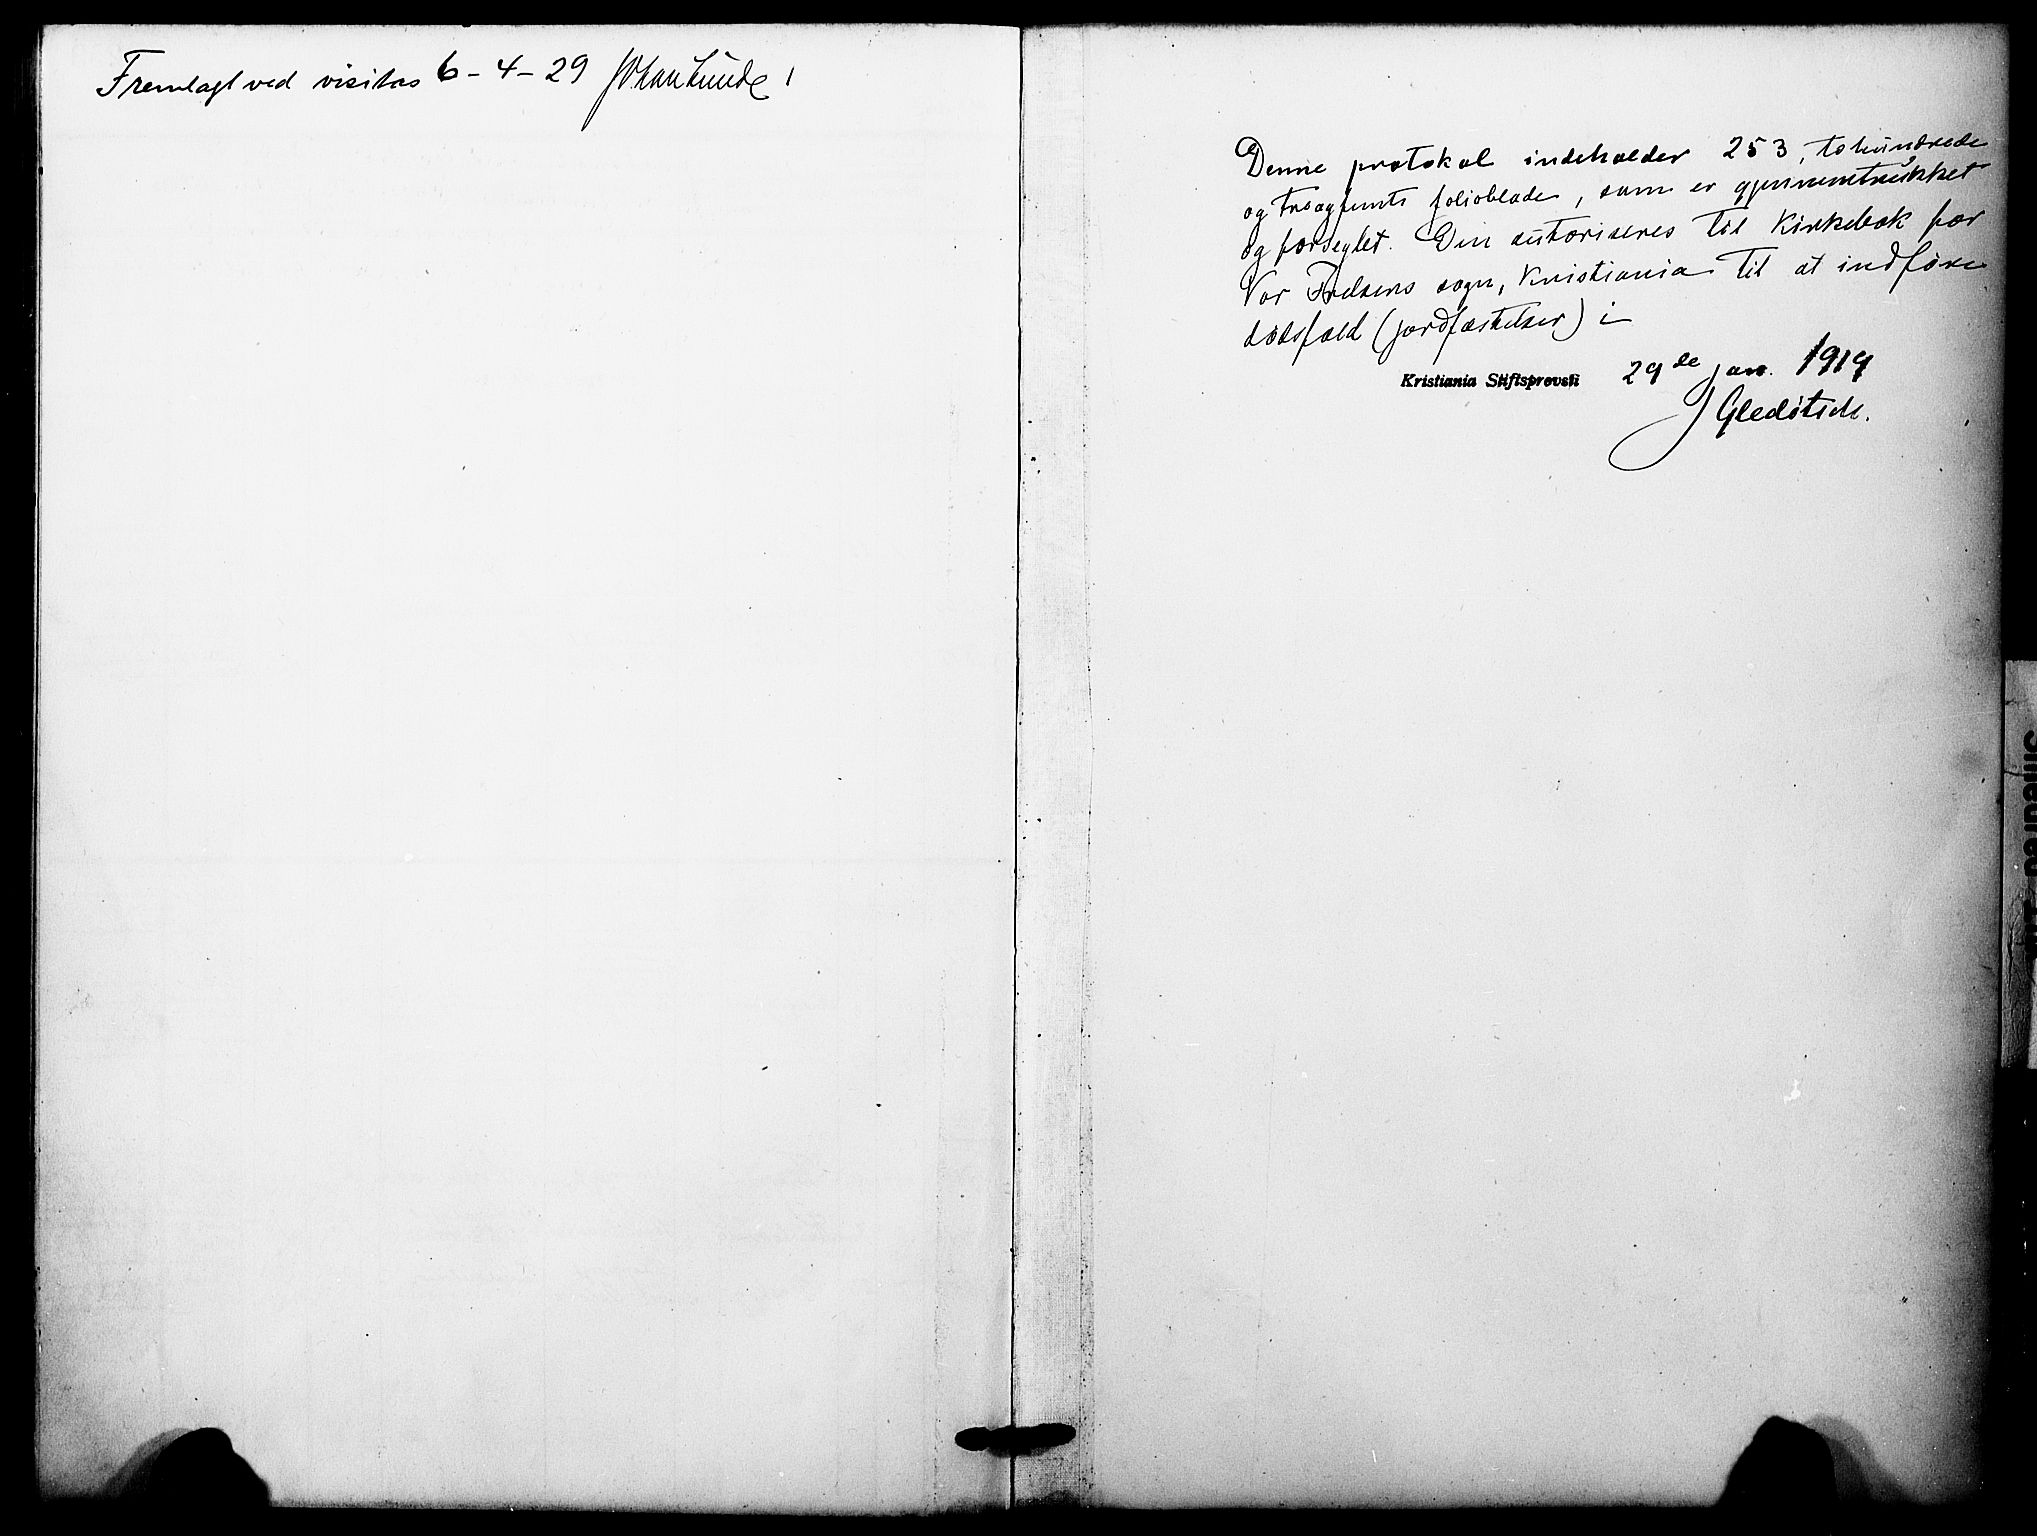 Fremlagt ved visitas 6-4-29 Johan Lunde
Denne protokol indeholder 253, tohundrede
og treogfemti folioblade, som er gjennemtrukket
og forseglet. Den autoriseres til Kirkebok for
Vor Frelsers sogn, Kristiania til at indføre
dødsfald (jordfæstelser) i
Kristiania Stiftsprovsti 29de jan. 1919
J Gleditsch.